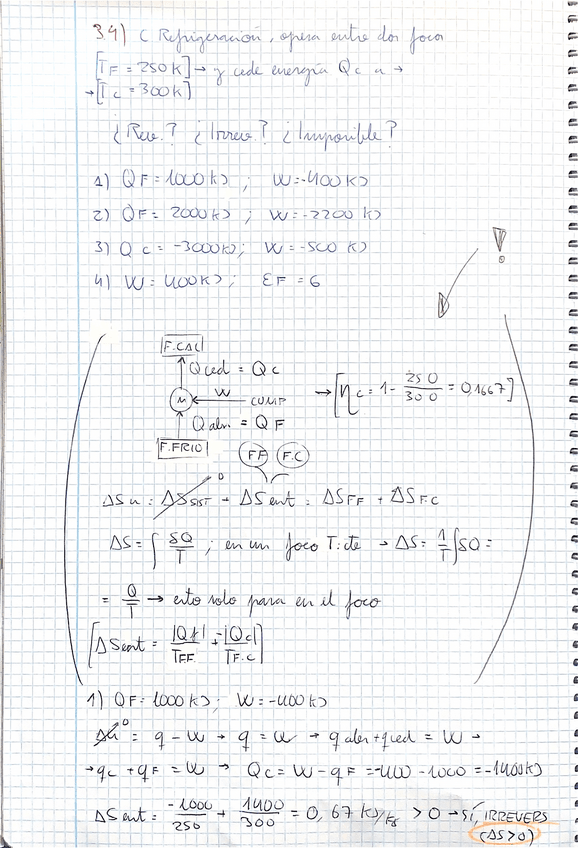 3.4) C Refrigeración, opera entre dos focos
[T_F = 250K] → y cede energía Qc a →
→ [T_C = 300K]
¿Rev.? ¿Irrev.? ¿Imposible?
1) QF = 1000 KJ ; W = -400 KJ
2) QF = 2000 KJ ; W = -2200 KJ
3) Qc = -3000 KJ; W = -500 KJ
4) W = 400 KJ ; EF = 6
!
F.CAL
Qced = Qc
M W COMP → [ηc = 1 - 250/300 = 0,1667]
Qabs = QF
F.FRIO
FF F.C
ΔSu = ΔSsist 0 + ΔSent = ΔSFF + ΔSF.C
ΔS = ∫ δQ/T ; en un foco T = cte → ΔS = 1/T ∫ δQ =
= Q/T → esto solo para en el foco
[ΔSent = |Qf|/TFF + -|Qc|/TF.C]
1) QF = 1000 KJ ; W = -400 KJ
Δu 0 = q - w → q = w → qabs + qced = W →
→ qc + qF = W → Qc = W - qF = -400 - 1000 = -1400 KJ
ΔSent = -1000/250 + 1400/300 = 0,67 KJ/K > 0 → sí, IRREVERS
(ΔS>0)